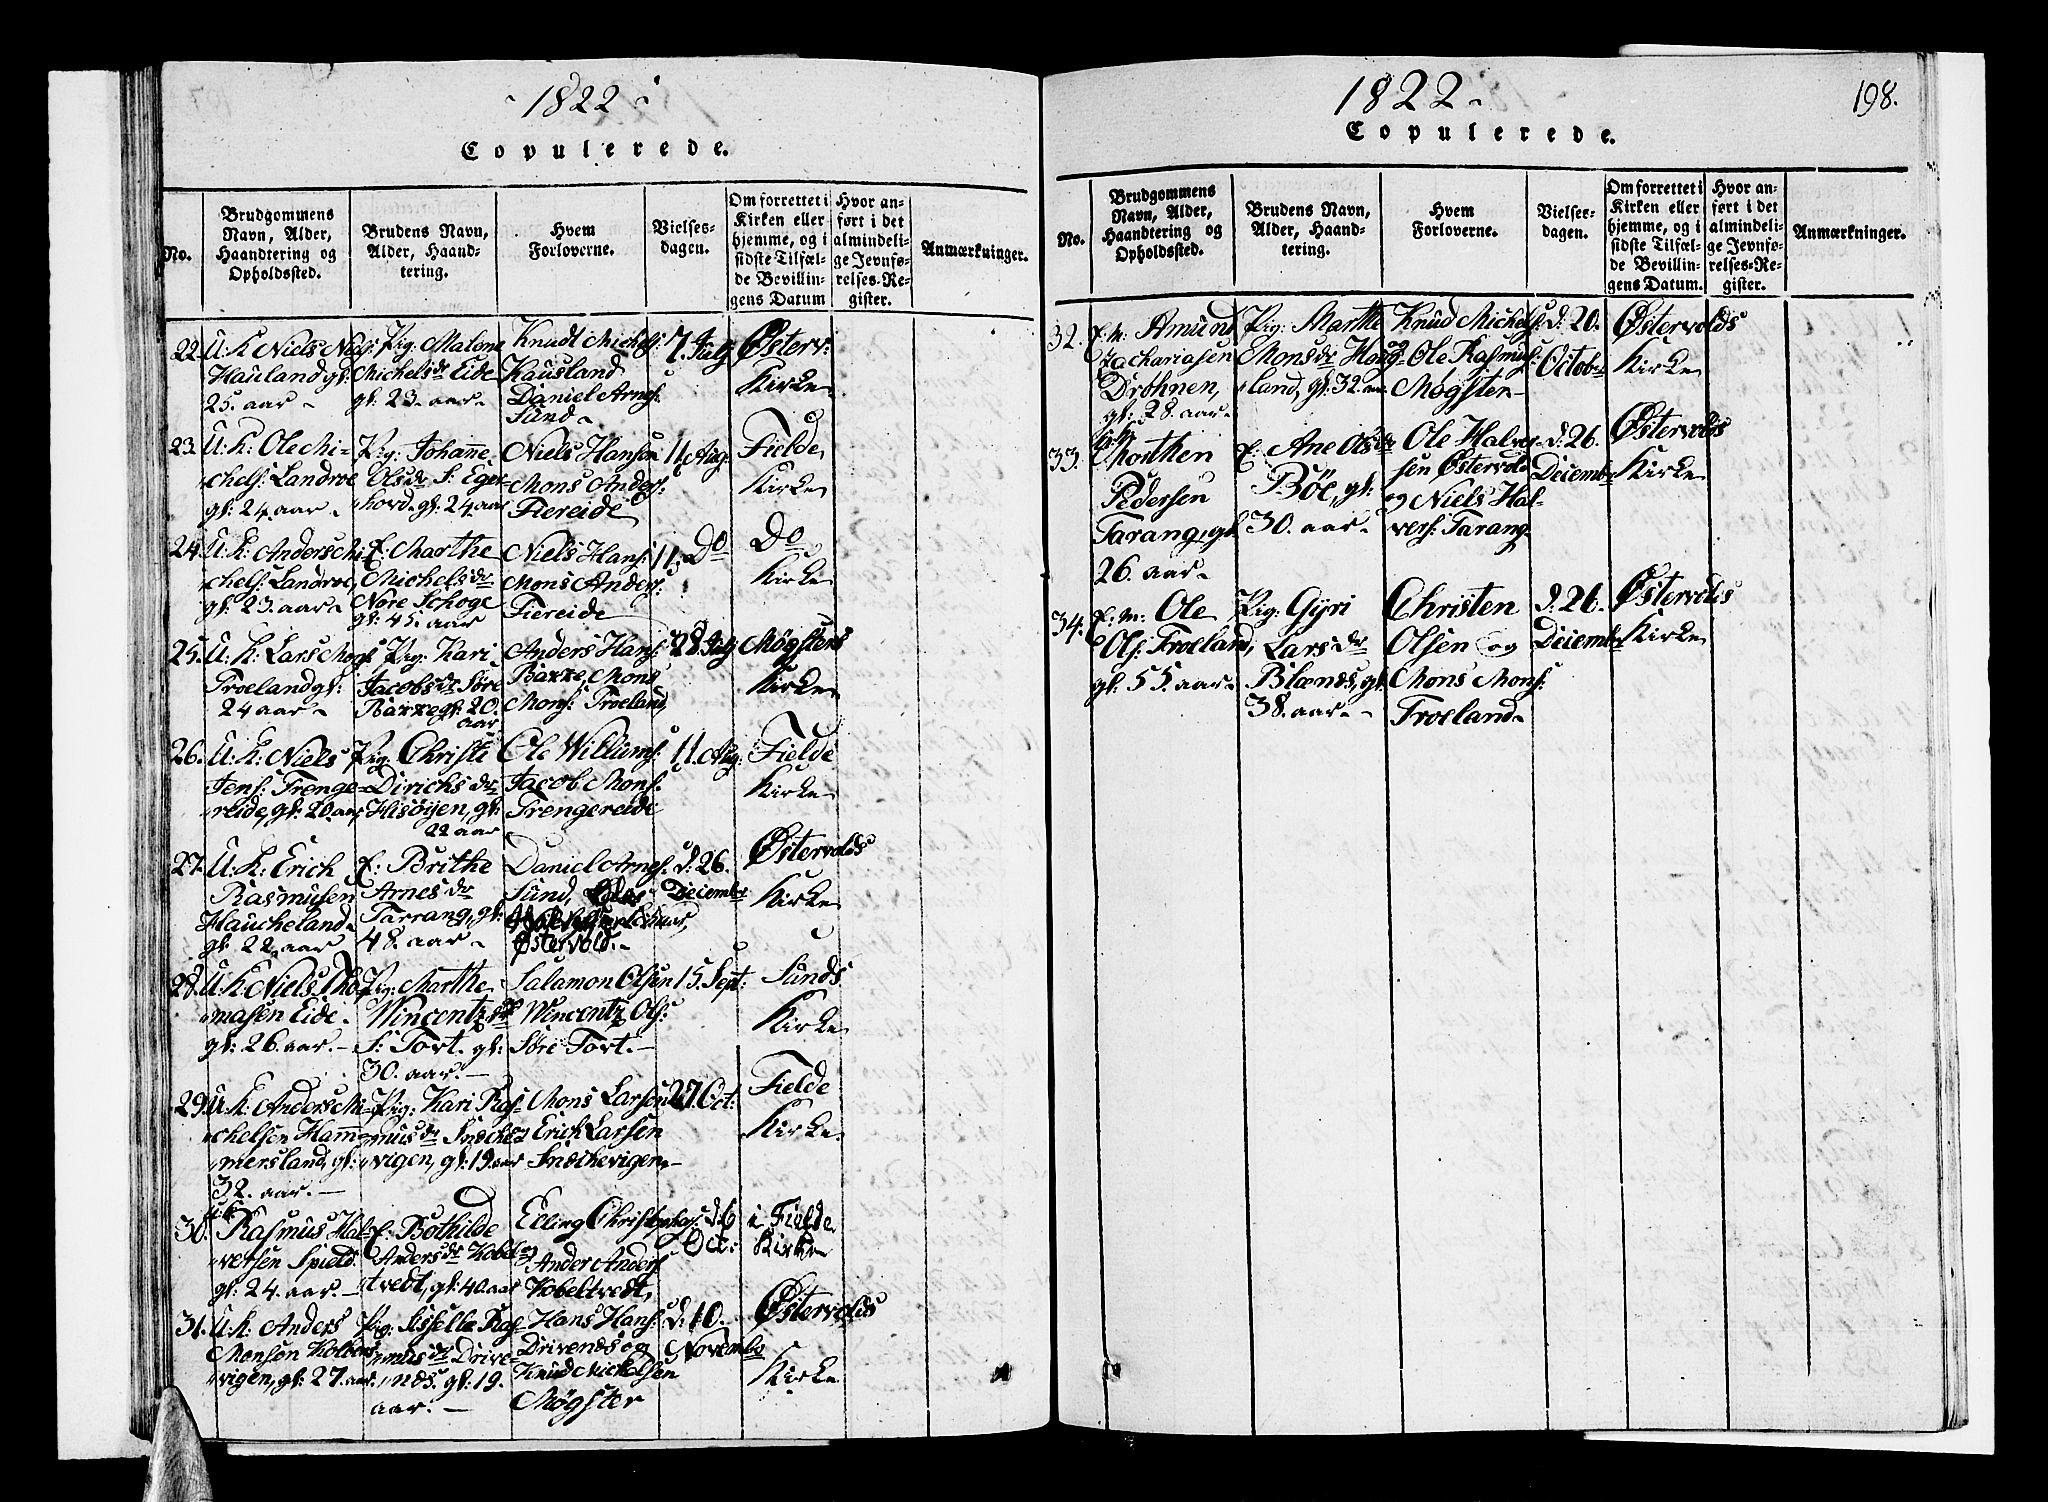 1822
Copulerede.
No.
Brudgommens Navn, Alder, Haandtering og Opholdssted.
Brudens Navn, Alder, Haandtering.
Hvem Forloverne.
Vielsesdagen.
Om forrettet i Kirken eller hjemme, og i sidste Tilfælde Bevillingens Datum
Hvor anført i det almindelige Jevnførelses-Register.
Anmærkninger.
22. U: K: Niels Niels: Hauland gl: 25. aar
Pig. Malene Michelsdr Eide gl: 23. aar
Knudt Michels: Hausland Daniel Arnes: Sund
7. July
Østerv: Kirke
23. U: K: Ole Michels: Landroe gl: 24. aar
Pig: Johanne Olsdr S: Egerhovd. gl: 24 aar
Niels Hansen Mons Anders: Fiereide
11 Aug:
Fielde Kirke
24. U: K: Anders Michels: Landroe, gl: 23. aar
E: Marthe Michelsdr Nore Schoge gl: 45. aar
Niels Hans: Mons Anders: Fiereide
11. Do
Do Kirke
25. U: K: Lars Mons: Troeland gl: 24 aar
Pig: Kari Jacobsdr Søre Bakke gl: 20. aar
Anders Hans: Bakke, Mons Mons: Troeland,
28. July
Møgsters Kirke
26. U: K: Niels Jens: Trengereide, gl: 20 aar
Pig: Christi Dirichsdr Hisøyen, gl: 22 aar
Ole Willums: Jacob Mons: Trengereide
11. Aug:
Fielde Kirke
27. U: K: Erich Rasmusen Haucheland gl: 22 aar
E: Brithe Arnesdr Tarrang, gl: 48. aar
Daniel Arnes: Sund, Østervold.
d: 26. December
Østervolds Kirke
28. U: K: Niels Thomasen Eide. gl: 26. aar.
Pig: Marthe Wincentzdr S: Tort. gl: 30. aar.
Salamon Olsen Wincentz Ols: Søre Tort.
15. Sept:
Sunds Kirke
29. U: K: Anders Michelsen Hammersland, gl: 32. aar.
Pig: Kari Rasmusdr Sndchevigen, gl: 19. aar
Mons Larsen Erich Larsen Sndchevigen,
27. Oct:
Fielde Kirke
30. U: K: Rasmus Halversen Spield. gl: 24. aar.
E: Bothilde Andersdr Kobeltvedt, gl: 40. aar
Elling Christophers: og Ander Anders Kobeltvedt,
d: 6 Dec:
i Fielde Kirke
31. U: K: Anders Monsen Kolbensvigen, gl: 27. aar.
Pig: Sisselle Rasmusdr Drivenæs. gl: 19. aar.
Hans Hans: Drivenæs og Knud Michelsen Møgster
d: 10. Novembr
Østervolds Kirke
1822
198.
Copulerede.
No.
Brudgommens Navn, Alder, Haandtering og Opholdssted.
Brudens Navn, Alder, Haandtering.
Hvem Forloverne.
Vielsesdagen.
Om forrettet i Kirken eller hjemme, og i sidste Tilfælde Bevillingens Datum.
Hvor anført i det almindelige Jevnførelses-Register.
Anmærkninger.
32. E. m: Amund Zachariasen Drøhnen, gl: 28. aar
Pig: Marthe Monsdr Hougland, gl: 32. aar
Knud Michels: og Ole Rasmus: Møgster
d: 20. Octobr
Østervolds Kirke
33. U. K: Morthen Pedersen Tarang, gl. 26. aar
E: Ane Olsdr Bøe, gl: 30. aar
Ole Halversen Østervold og Niels Halvers: Tarang.
d: 26. Decembr
Østervolds Kirke
34. E: m: Ole Ols: Troeland, gl: 55. aar
Pig: Gÿri Larsdr Blænes, gl: 38. aar
Christen Olsen og Mons Mons: Troeland
d: 26. Decembr
Østervolds Kirke